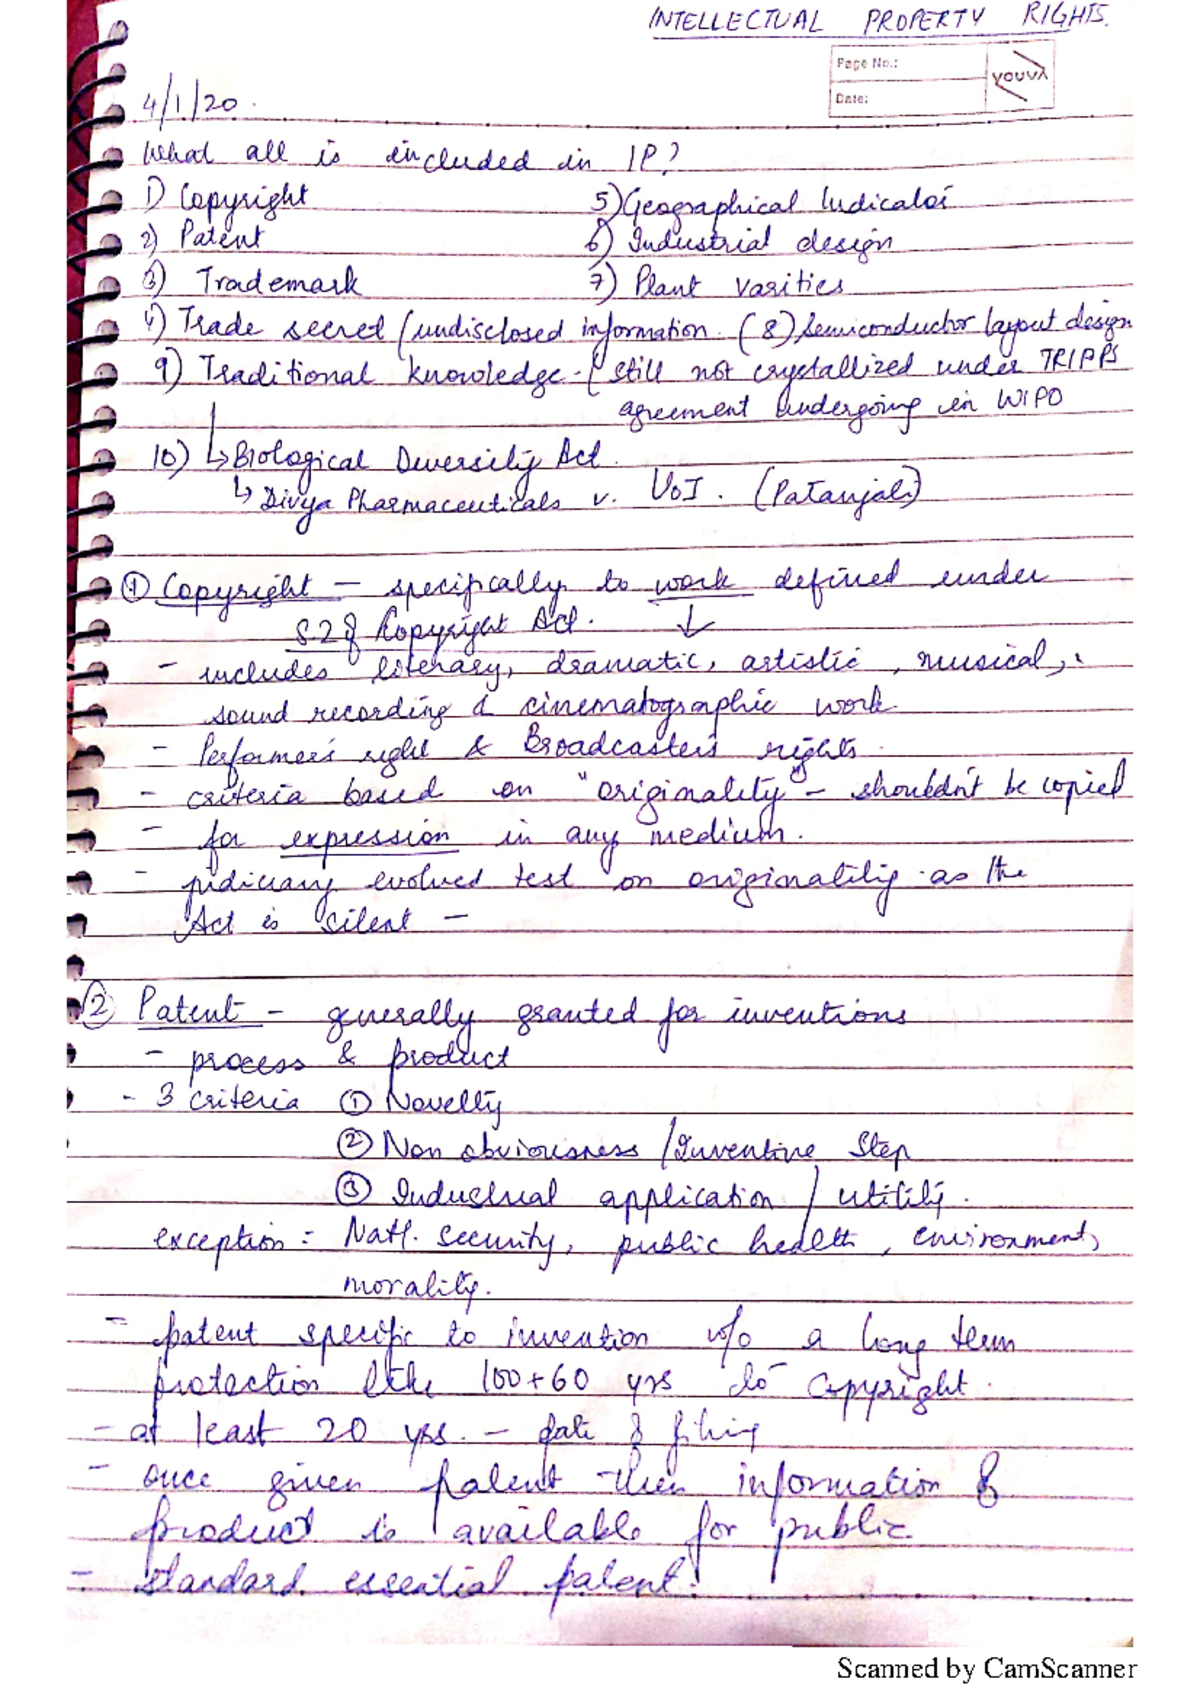 INTELLECTUAL PROPERTY RIGHTS.
Page No.:
Date:
youva
4/1/20.
What all is included in IP?
1) Copyright
5) Geographical Indicator
2) Patent
6) Industrial design
3) Trademark
7) Plant varities
4) Trade secret / undisclosed information. (8) Semiconductor layout design
9) Traditional knowledge - (still not crystallized under TRIPPS
agreement undergoing in WIPO
10) ↳ Biological Diversity Act.
↳ Divya Pharmaceuticals v. UoI. (Patanjali)
① Copyright — specifically to work defined under
S.2 of Copyright Act. ↓
- includes literary, dramatic, artistic, musical,
sound recording & cinematographic work.
- Performer's right & Broadcaster's rights.
- criteria based on "originality" - shouldn't be copied
- for expression in any medium.
- judiciary evolved test on originality as the
Act is silent -
② Patent - generally granted for inventions
- process & product
- 3 criteria ① Novelty
② Non obviousness / Inventive Step
③ Industrial application / utility.
exception: Natl. security, public health, environment,
morality.
- patent specific to invention w/o a long term
protection like 100+60 yrs to copyright.
- at least 20 yrs. - date of filing
- once given patent then information of
product is available for public
- standard essential patent.
Scanned by CamScanner